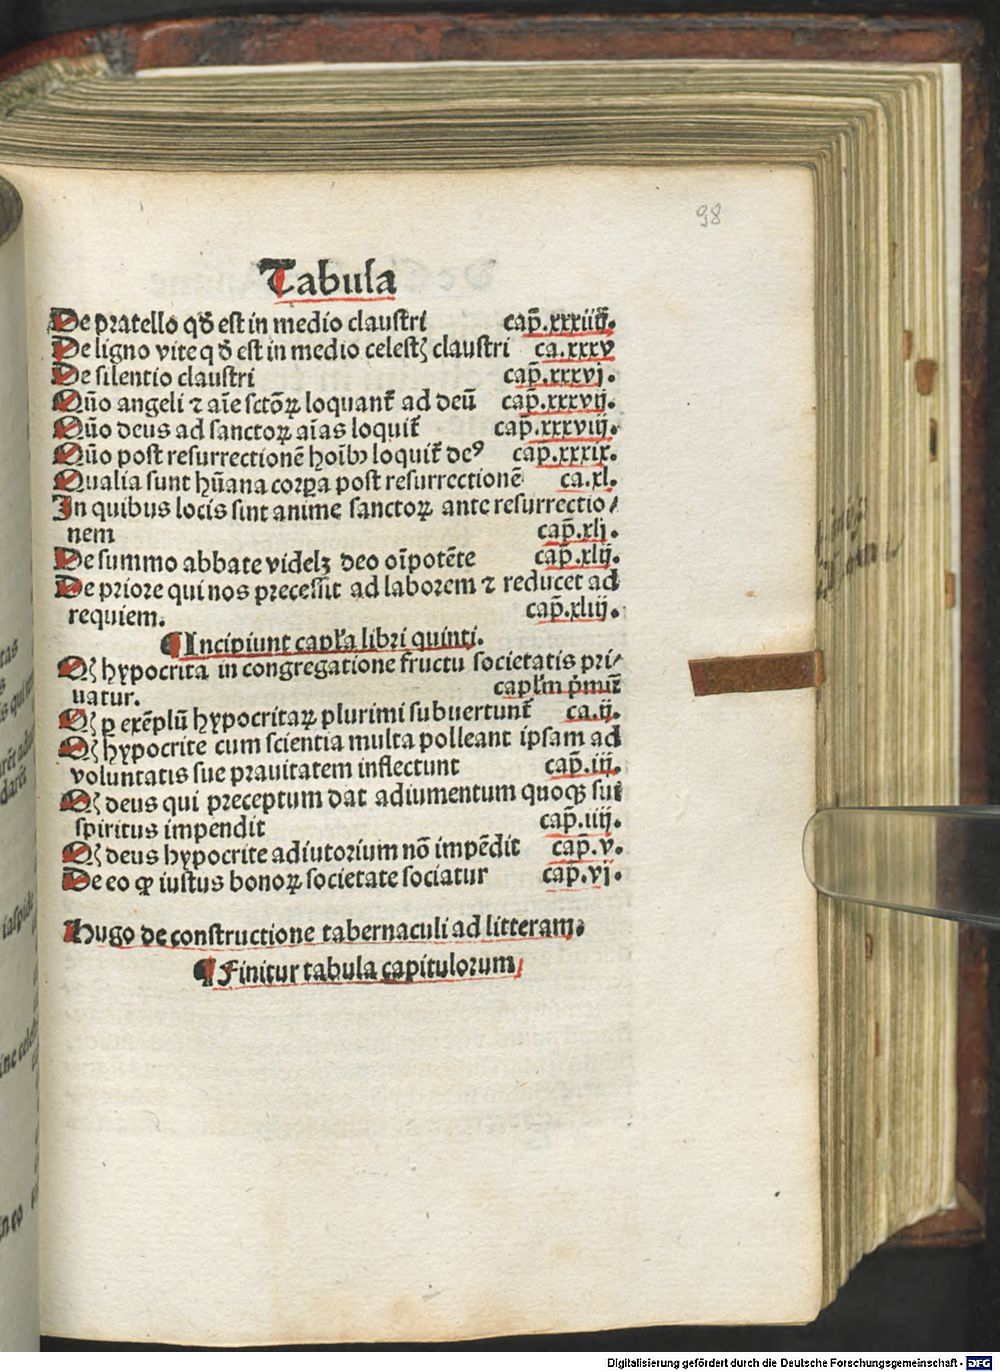 98
Tabula
De pratello qð est in medio claustri cap̃.xxxiiij.
De ligno vite q ð est in medio celestꝫ claustri ca.xxxv
De silentio claustri cap̃.xxxvj.
Qũo angeli ⁊ aĩe sctõꝝ loquant᷑ ad deũ cap̃.xxxvij.
Qũo deus ad sanctoꝝ aĩas loquit᷑ cap̃.xxxviij.
Qũo post resurrectionẽ hoĩbꝰ loquit᷑ deꝰ cap̃.xxxix.
Qualia sunt hũana corꝑa post resurrectionẽ ca.xl.
In quibus locis sint anime sanctoꝝ ante resurrectio/
nem cap̃.xlj.
De summo abbate videlꝫ deo oĩpotẽte cap̃.xlij.
De priore qui nos precessit ad laborem ⁊ reducet ad
requiem. cap̃.xliij.
¶ Incipiunt capĺa libri quinti.
Qꝫ hypocrita in congregatione fructu societatis pri/
uatur. capĺm p̃mũ
Qꝫ ꝑ exẽplũ hypocritaꝝ plurimi subuertunt᷑ ca.ij.
Qꝫ hypocrite cum scientia multa polleant ipsam ad
voluntatis sue prauitatem inflectunt cap̃.iij.
Qꝫ deus qui preceptum dat adiumentum quoqꝫ sui
spiritus impendit cap̃.iiij.
Qꝫ deus hypocrite adiutorium nõ impẽdit cap̃.v.
De eo ꝙ iustus bonoꝝ societate sociatur cap̃.vj.
Hugo de constructione tabernaculi ad litteram.
¶ Finitur tabula capitulorum
Digitalisierung gefördert durch die Deutsche Forschungsgemeinschaft - DFG